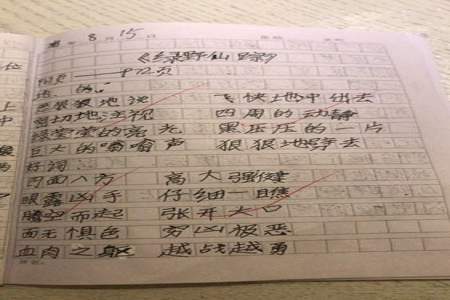 8月15
《绿野仙踪》
——P72页
地、的:
恶狠狠地说 飞快地冲出去
密切地注视 四周的动静
绿莹莹的亮光 黑压压的一片
巨大的嗡嗡声 狠狠地劈去
好词
四面八方 高大强健
眼露凶手 仔细一瞧
腾空而起 张开大口
面无惧色 穷凶极恶
血肉之躯 越战越勇